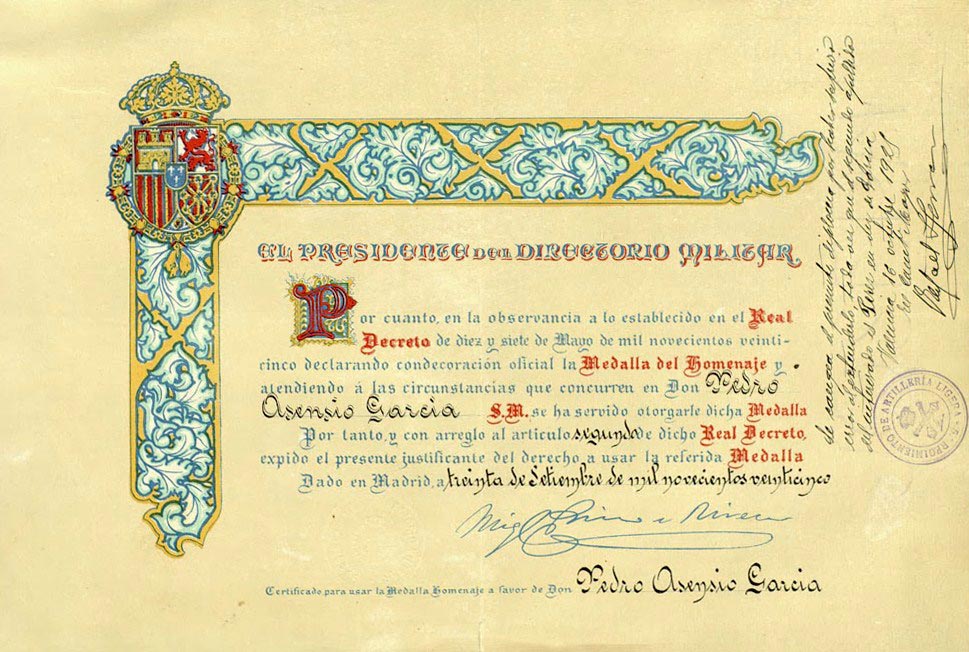 EL PRESIDENTE del DIRECTORIO MILITAR
Por cuanto, en la observancia a lo establecido en el Real
Decreto de diez y siete de Mayo de mil novecientos veinti-
cinco declarando condecoración oficial la Medalla del Homenaje y
atendiendo á las circunstancias que concurren en Don Pedro
Asensio Garcia S.M. se ha servido otorgarle dicha Medalla
Por tanto, y con arreglo al articulo segundo de dicho Real Decreto,
expido el presente justificante del derecho a usar la referida Medalla
Dado en Madrid, a treinta de Setiembre de mil novecientos veinticinco
Miguel Primo de Rivera
Certificado para usar la Medalla Homenaje a favor de Don Pedro Asensio Garcia
Se el presente por haber sufrido
error al estenderlo, toda vez que el segundo apellido
del interesado es y no Garcia
Valencia 16 octubre 1925
El
Rafael
REGIMIENTO DE ARTILLERÍA LIGERA